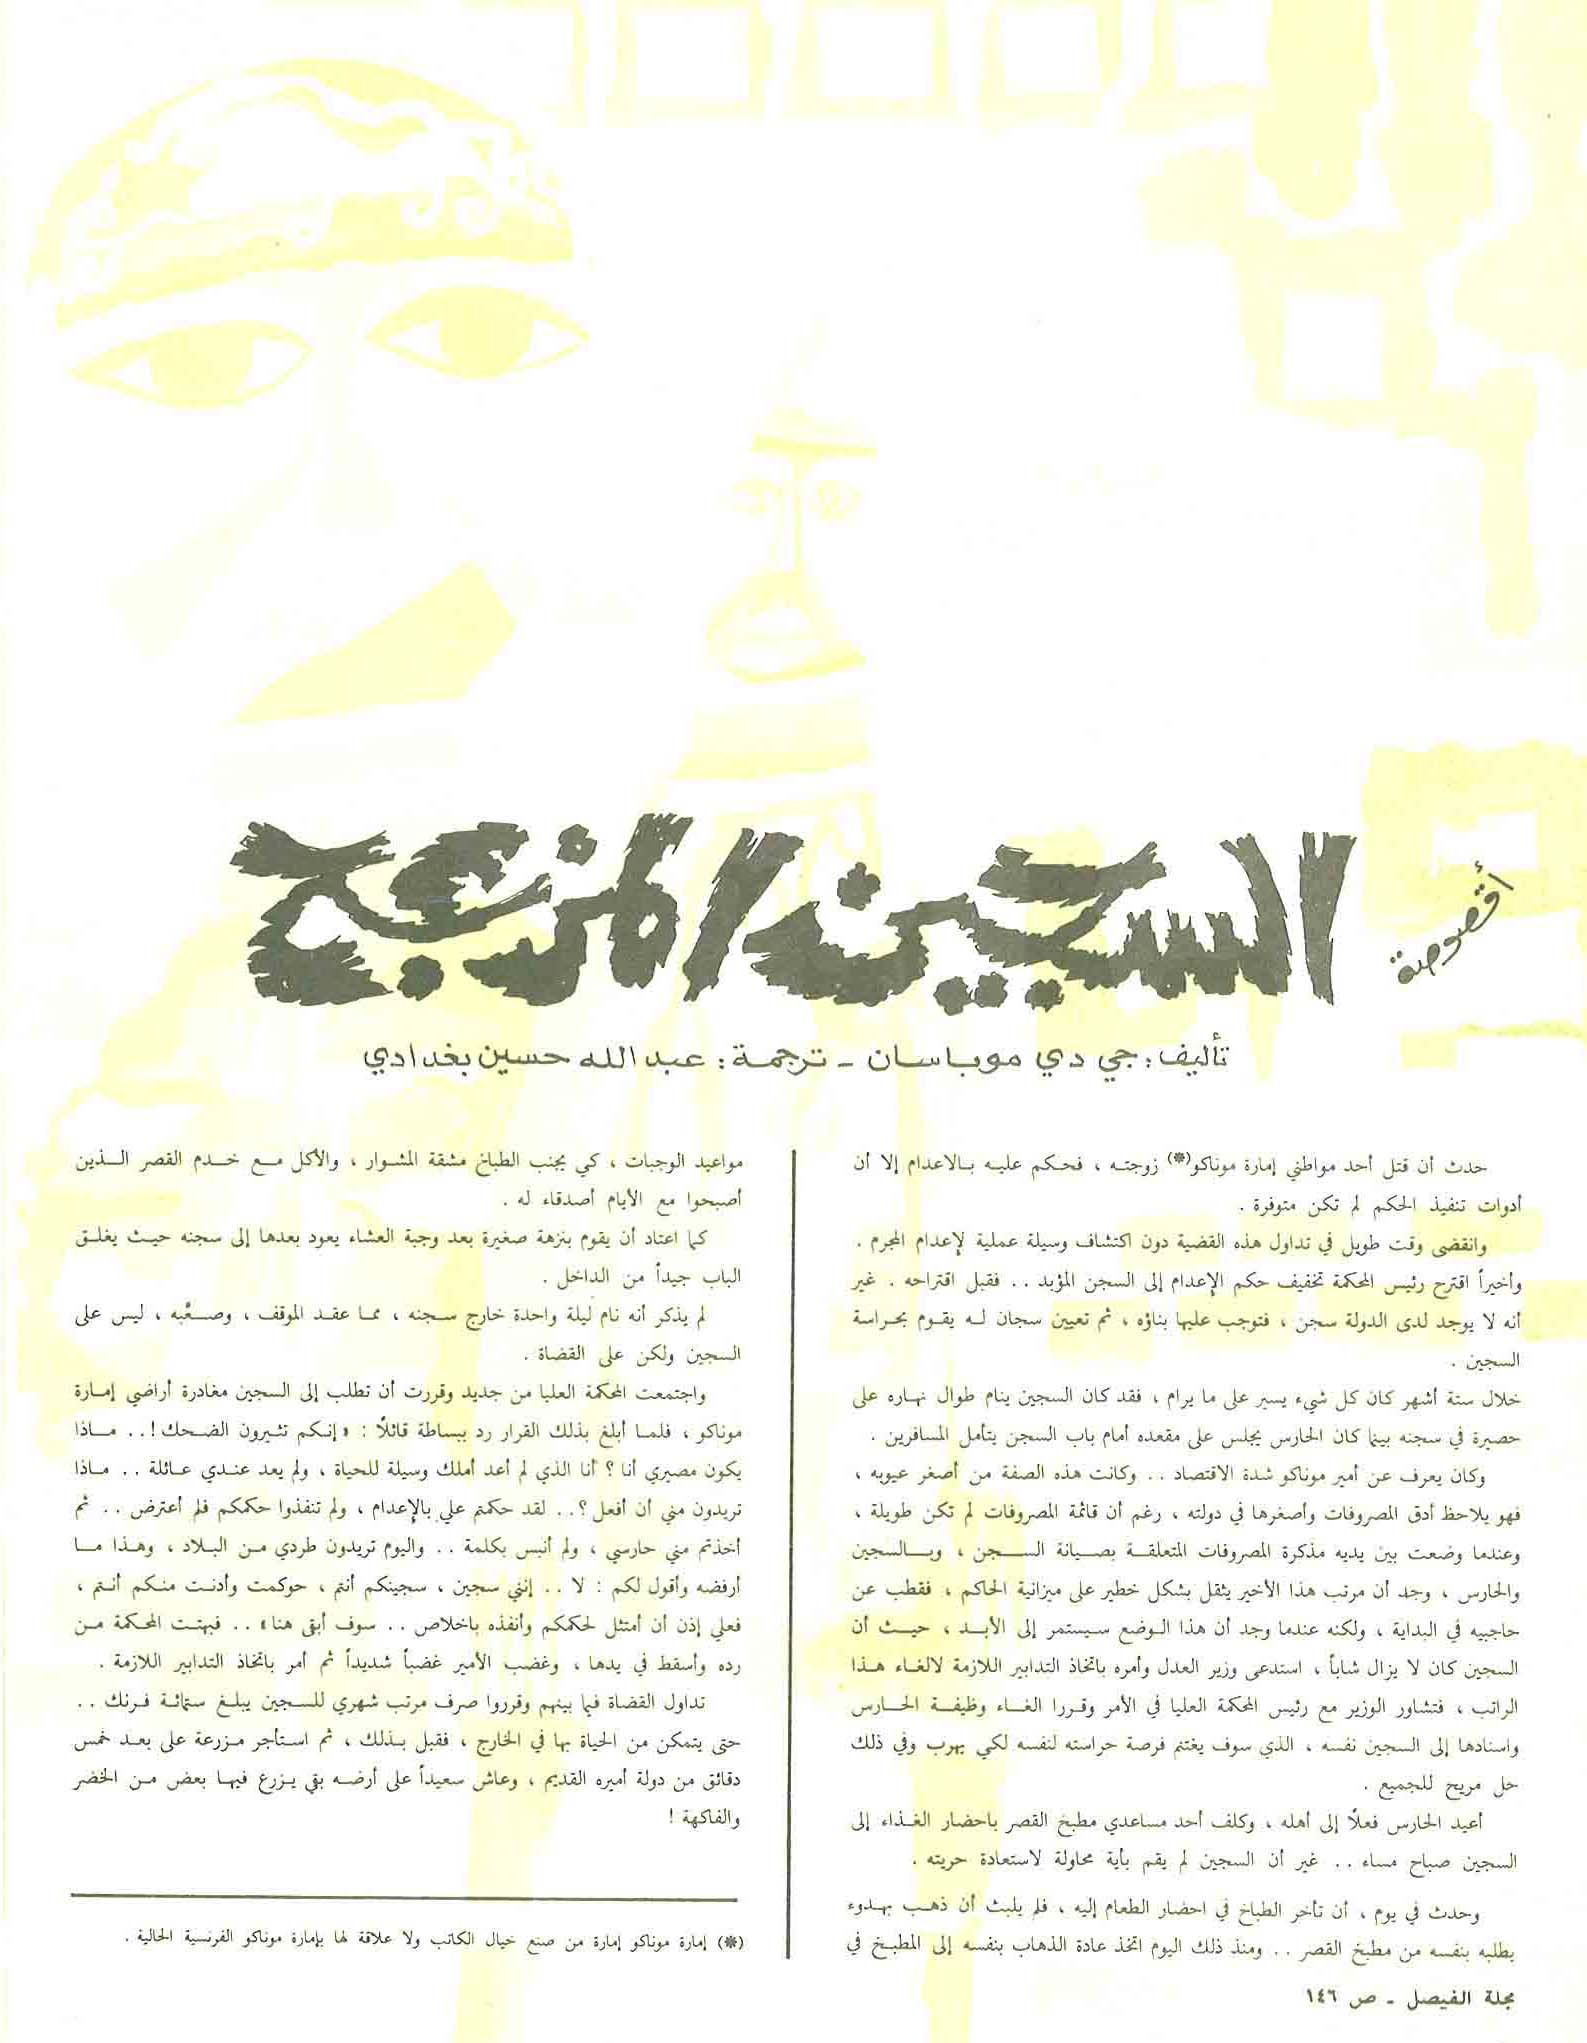 أقصوصة
السجين المزعج
تأليف: جي دي موباسان - ترجمة: عبد الله حسين بغدادي
حدث أن قتل أحد مواطني إمارة موناكو(*) زوجته ، فحكم عليه بالاعدام إلا أن
أدوات تنفيذ الحكم لم تكن متوفرة .
وانقضى وقت طويل في تداول هذه القضية دون اكتشاف وسيلة عملية لإعدام المجرم .
وأخيراً اقترح رئيس المحكمة تخفيف حكم الإعدام إلى السجن المؤبد .. فقبل اقتراحه . غير
أنه لا يوجد لدى الدولة سجن ، فتوجب عليها بناؤه ، ثم تعيين سجان له يقوم بحراسة
السجين .
خلال ستة أشهر كان كل شيء يسير على ما يرام ، فقد كان السجين ينام طوال نهاره على
حصيرة في سجنه بينما كان الحارس يجلس على مقعده أمام باب السجن يتأمل المسافرين .
وكان يعرف عن أمير موناكو شدة الاقتصاد .. وكانت هذه الصفة من أصغر عيوبه ،
فهو يلاحظ أدق المصروفات وأصغرها في دولته ، رغم أن قائمة المصروفات لم تكن طويلة ،
وعندما وضعت بين يديه مذكرة المصروفات المتعلقة بصيانة السجن ، وبالسجين
والحارس ، وجد أن مرتب هذا الأخير يثقل بشكل خطير على ميزانية الحاكم ، فقطب عن
حاجبيه في البداية ، ولكنه عندما وجد أن هذا الوضع سيستمر إلى الأبد ، حيث أن
السجين كان لا يزال شاباً ، استدعى وزير العدل وأمره باتخاذ التدابير اللازمة لالغاء هذا
الراتب ، فتشاور الوزير مع رئيس المحكمة العليا في الأمر وقررا الغاء وظيفة الحارس
واسنادها إلى السجين نفسه ، الذي سوف يغتنم فرصة حراسته لنفسه لكي يهرب وفي ذلك
حل مريح للجميع .
أعيد الحارس فعلاً إلى أهله ، وكلف أحد مساعدي مطبخ القصر باحضار الغذاء إلى
السجين صباح مساء .. غير أن السجين لم يقم بأية محاولة لاستعادة حريته .
وحدث في يوم ، أن تأخر الطباخ في احضار الطعام إليه ، فلم يلبث أن ذهب بهدوء
يطلبه بنفسه من مطبخ القصر .. ومنذ ذلك اليوم اتخذ عادة الذهاب بنفسه إلى المطبخ في
مواعيد الوجبات ، كي يجنب الطباخ مشقة المشوار ، والأكل مع خدم القصر الذين
أصبحوا مع الأيام أصدقاء له .
كما اعتاد أن يقوم بنزهة صغيرة بعد وجبة العشاء يعود بعدها إلى سجنه حيث يغلق
الباب جيداً من الداخل .
لم يذكر أنه نام ليلة واحدة خارج سجنه ، مما عقد الموقف ، وصعّبه ، ليس على
السجين ولكن على القضاة .
واجتمعت المحكمة العليا من جديد وقررت أن تطلب إلى السجين مغادرة أراضي إمارة
موناكو ، فلما أبلغ بذلك القرار رد ببساطة قائلاً : «إنكم تثيرون الضحك !.. ماذا
يكون مصيري أنا ؟ أنا الذي لم أعد أملك وسيلة للحياة ، ولم يعد عندي عائلة .. ماذا
تريدون مني أن أفعل ؟.. لقد حكمتم علي بالإعدام ، ولم تنفذوا حكمكم فلم أعترض .. ثم
أخذتم مني حارسي ، ولم أنبس بكلمة .. واليوم تريدون طردي من البلاد ، وهذا ما
أرفضه وأقول لكم : لا .. إنني سجين ، سجينكم أنتم ، حوكمت وأدنت منكم أنتم ،
فعلي إذن أن أمتثل لحكمكم وأنفذه باخلاص .. سوف أبقى هنا» .. فبهتت المحكمة من
رده وأسقط في يدها ، وغضب الأمير غضباً شديداً ثم أمر باتخاذ التدابير اللازمة .
تداول القضاة فيما بينهم وقرروا صرف مرتب شهري للسجين يبلغ ستمائة فرنك ..
حتى يتمكن من الحياة بها في الخارج ، فقبل بذلك ، ثم استأجر مزرعة على بعد خمس
دقائق من دولة أميره القديم ، وعاش سعيداً على أرضه بقي يزرع فيها بعض من الخضر
والفاكهة !
(*) إمارة موناكو إمارة من صنع خيال الكاتب ولا علاقة لها بإمارة موناكو الفرنسية الحالية .
مجلة الفيصل - ص ١٤٦